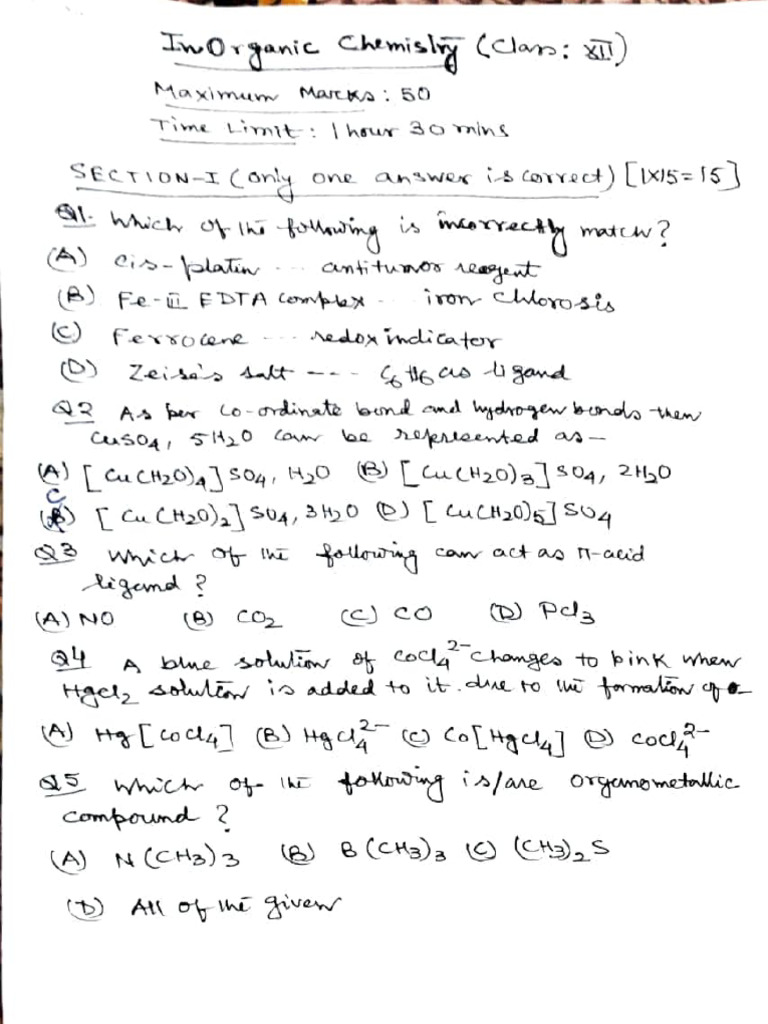 InOrganic Chemistry (Class: XII)
Maximum Marks: 50
Time Limit: 1 hour 30 mins
SECTION-I (only one answer is correct) [1x15=15]
Q1. Which of the following is incorrectly match?
(A) cis-platin ... antitumor reagent
(B) Fe-III EDTA complex ... iron chlorosis
(C) Ferrocene ... redox indicator
(D) Zeise's salt --- C6H6 as ligand
Q2 As per co-ordinate bond and hydrogen bonds then
CuSO4, 5H2O can be represented as-
(A) [Cu(H2O)4] SO4, H2O (B) [Cu(H2O)3] SO4, 2H2O
(C) [Cu(H2O)2] SO4, 3H2O (D) [Cu(H2O)5] SO4
Q3 Which of the following can act as π-acid
ligand?
(A) NO (B) CO2 (C) CO (D) PCl3
Q4 A blue solution of CoCl4²⁻ changes to pink when
HgCl2 solution is added to it. due to the formation of
(A) Hg[CoCl4] (B) HgCl4²⁻ (C) Co[HgCl4] (D) CoCl4²⁻
Q5 Which of the following is/are organometallic
compound?
(A) N(CH3)3 (B) B(CH3)3 (C) (CH3)2S
(D) All of the given